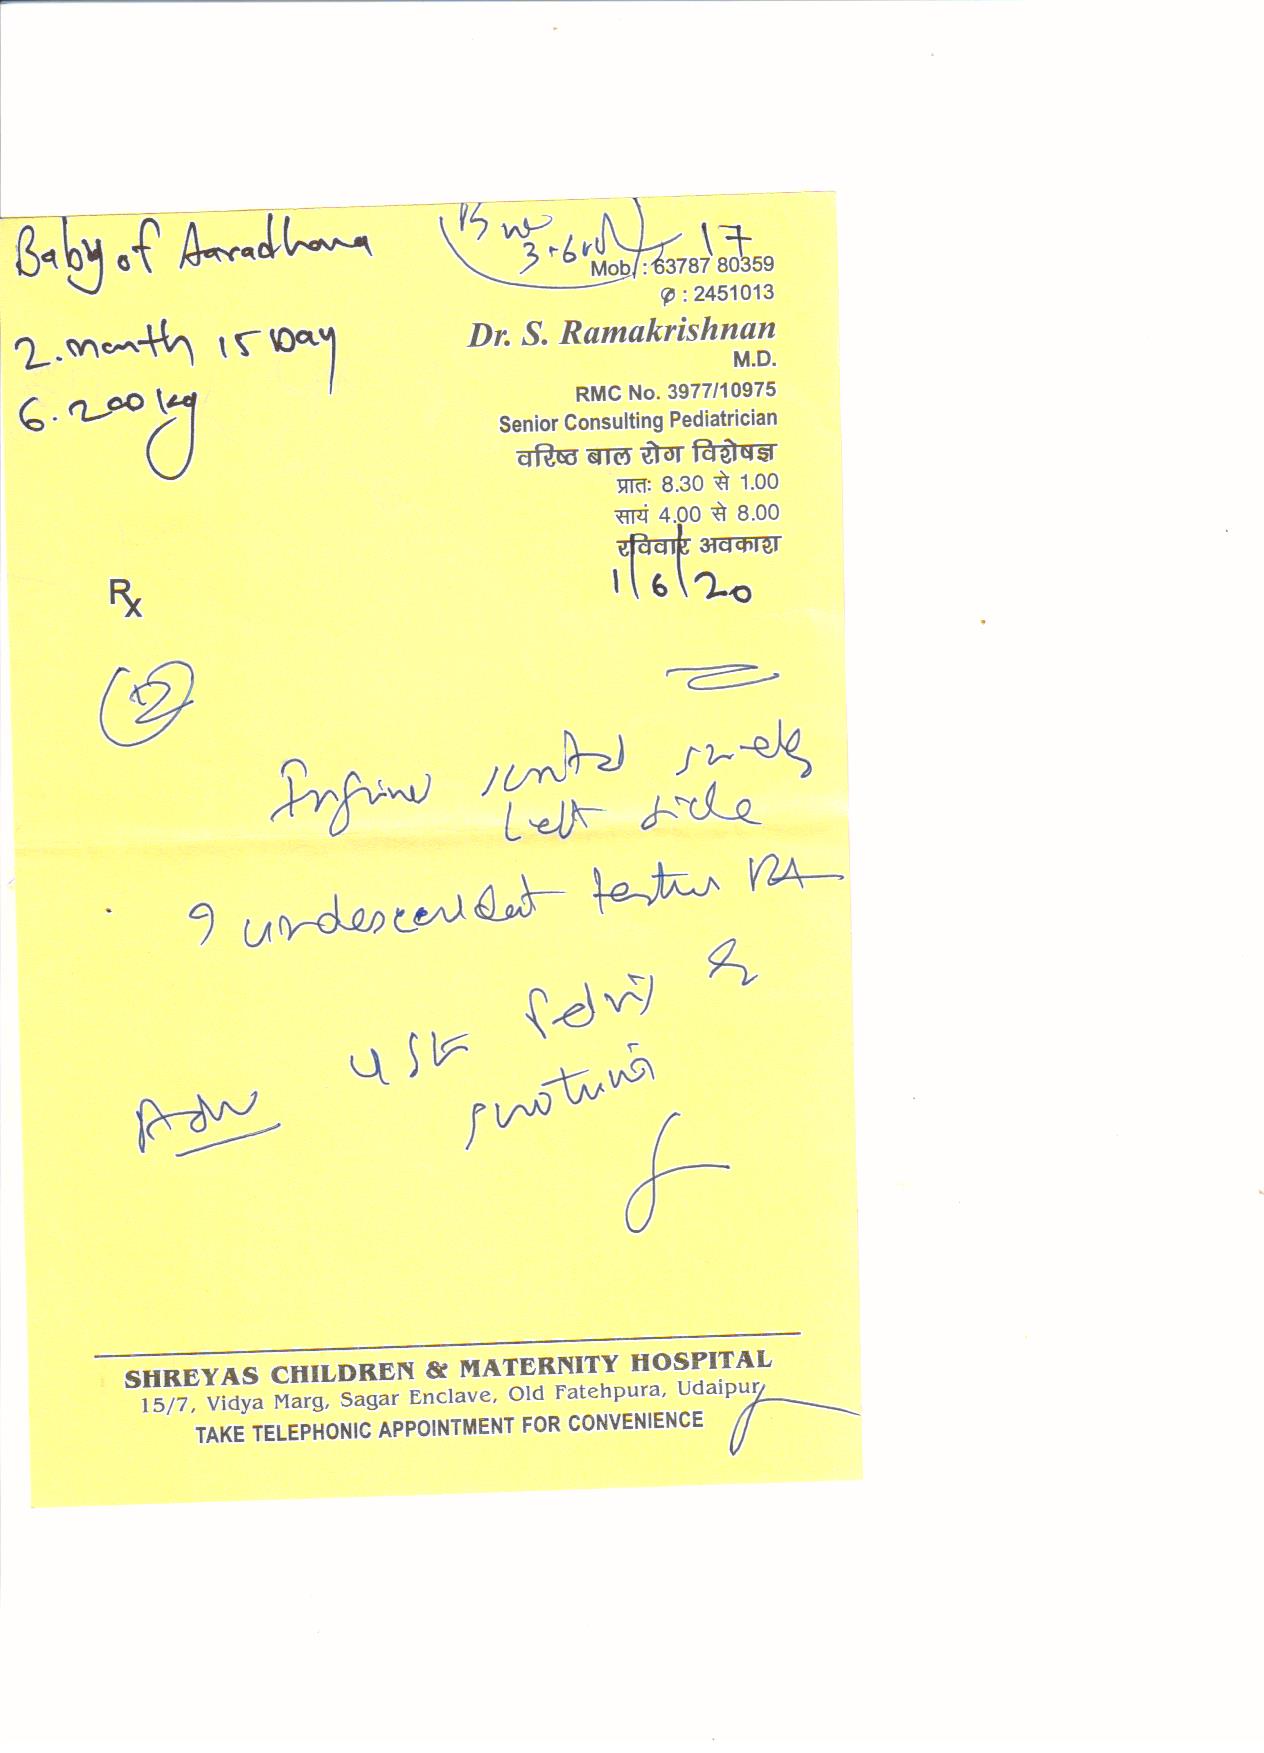 Baby of Aaradhana
2. month 15 Day
6.200 kg
B w
3.6
17
Mob. : 63787 80359
✆ : 2451013
Dr. S. Ramakrishnan
M.D.
RMC No. 3977/10975
Senior Consulting Pediatrician
वरिष्ठ बाल रोग विशेषज्ञ
प्रातः 8.30 से 1.00
सायं 4.00 से 8.00
रविवार अवकाश
1/6/20
Rx
left side
? undescendent testis
Adv
USG Pelvis &
SHREYAS CHILDREN & MATERNITY HOSPITAL
15/7, Vidya Marg, Sagar Enclave, Old Fatehpura, Udaipur
TAKE TELEPHONIC APPOINTMENT FOR CONVENIENCE